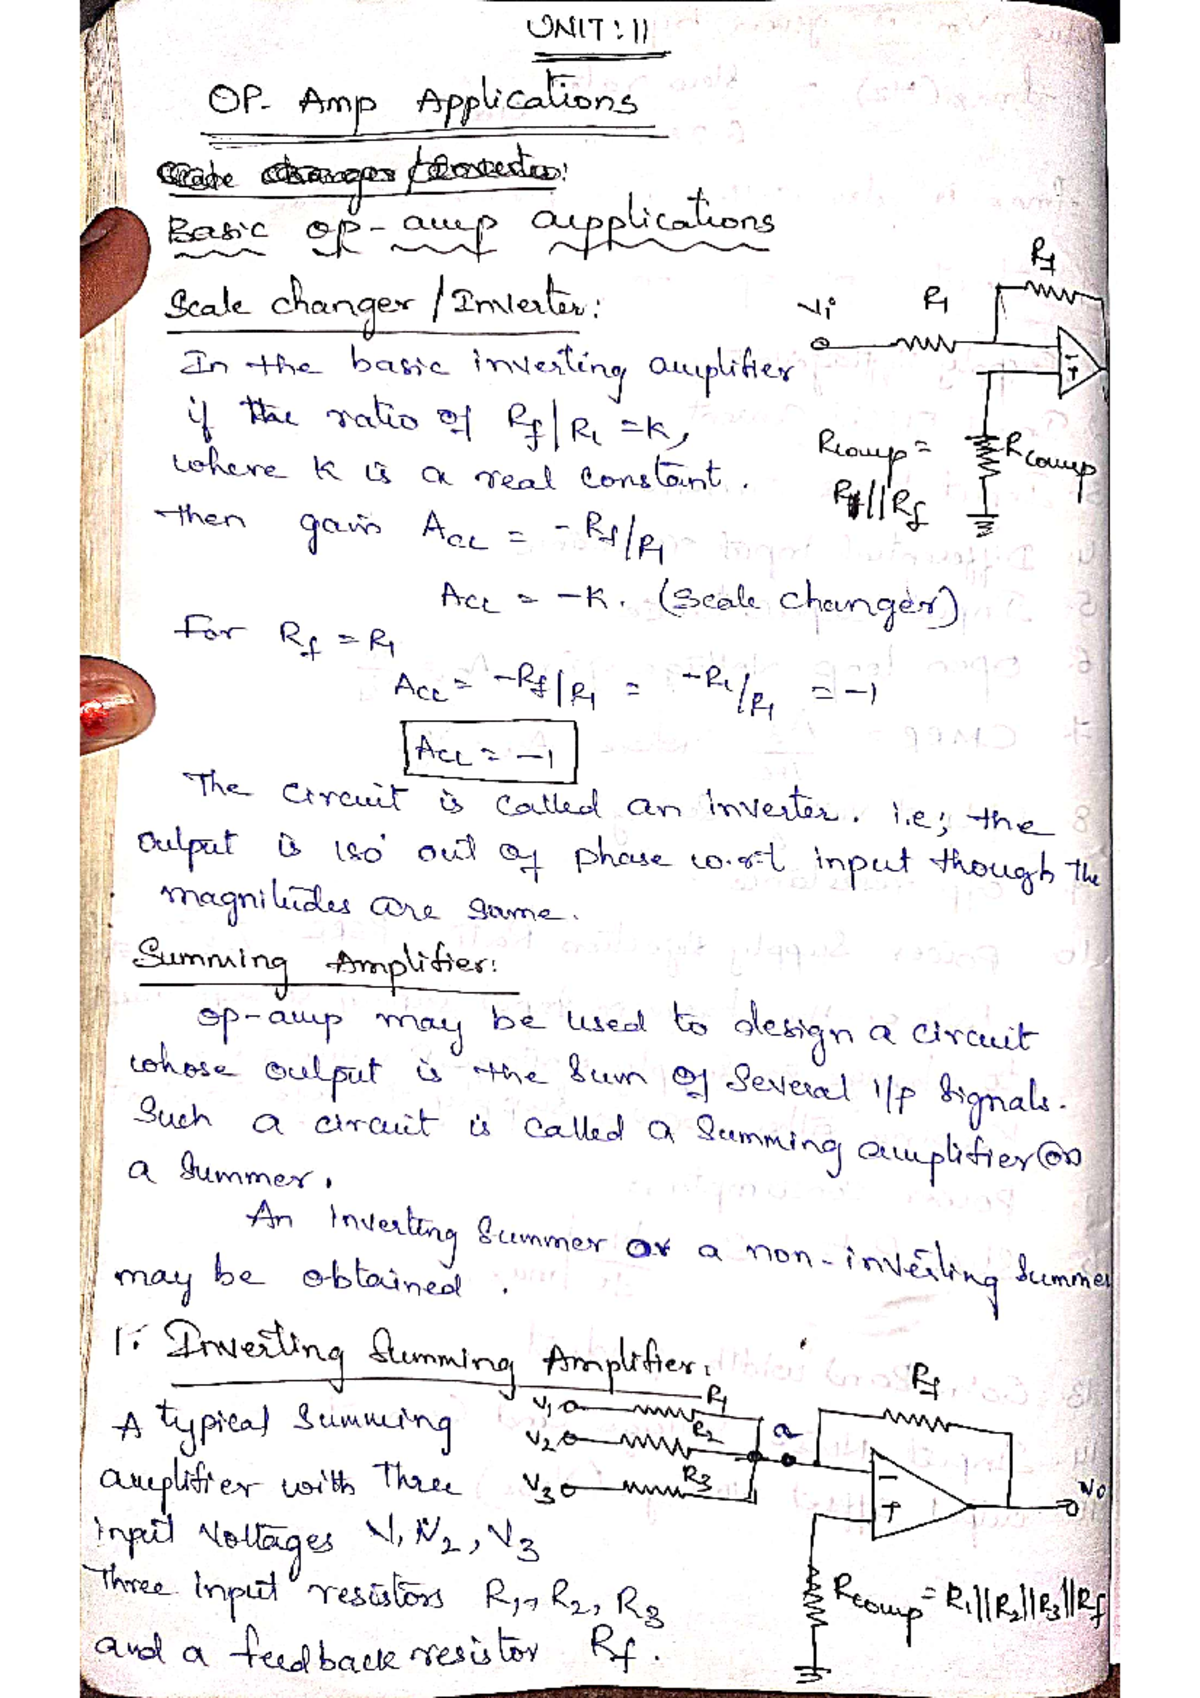 UNIT : II
OP- Amp Applications
Scale changer / Inverter:
Basic op-amp applications
Scale changer / Inverter:
In the basic inverting amplifier
if the ratio of Rf | R1 = K,
where K is a real constant.
then gain ACL = - Rf/R1
ACL = -K. (Scale changer)
Vi
R1
Rf
-
+
Rcomp =
R1||Rf
Rcomp
For Rf = R1
ACL = -Rf | R1 = -R1/R1 = -1
ACL = -1
The circuit is called an inverter. i.e; the
output is 180° out of phase w.r.t input though the
magnitudes are same.
Summing Amplifier:
op-amp may be used to design a circuit
whose output is the sum of several i/p signals.
Such a circuit is called a summing amplifier (or)
a summer.
An inverting summer or a non-inverting summer
may be obtained.
1. Inverting Summing Amplifier:
A typical summing
amplifier with three
input voltages V1 V2, V3
three input resistors R1, R2, R3
and a feedback resistor Rf.
V1
R1
V2
R2
V3
R3
a
Rf
-
+
Vo
Rcomp = R1||R2||R3||Rf